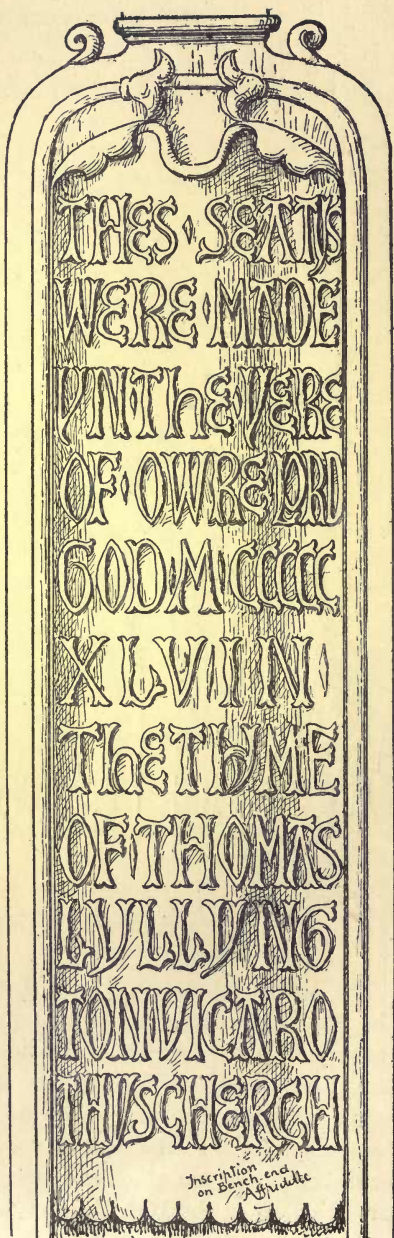 THES · SEATS
WERE · MADE
YN · THE · YERE
OF · OWRE · LORD
GOD · M · CCCCC
XLVI · IN ·
THE TYME
OF · THOMAS
LYLLYNG
TON VICAR O
THYS CHERCH
Inscription
on Bench-end
Affpidelte